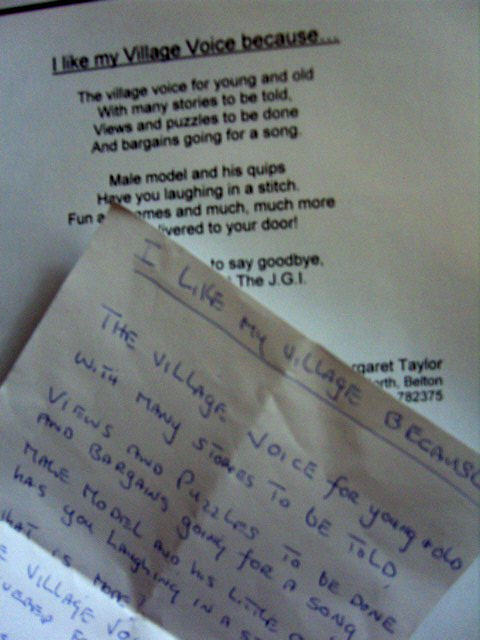 I like my Village Voice because...
The village voice for young and old
With many stories to be told,
Views and puzzles to be done
And bargains going for a song.
Male model and his quips
Have you laughing in a stitch.
Fun and much, much more
to your door!
to say goodbye,
The J.G.I.
Taylor
Belton
782375
I LIKE MY VILLAGE BECAUSE
THE VILLAGE VOICE for young + old
WITH MANY STORIES TO BE TOLD,
VIEWS AND PUZZLES TO BE DONE
AND BARGAINS going FOR A SONG
MALE MODEL AND HIS LITTLE
HAS you LAUGHING IN A
IS MORE
VILLAGE